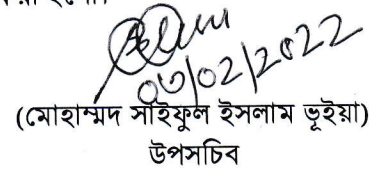 ০৩/০২/২০২২
(মোহাম্মদ সাইফুল ইসলাম ভূইয়া)
উপসচিব